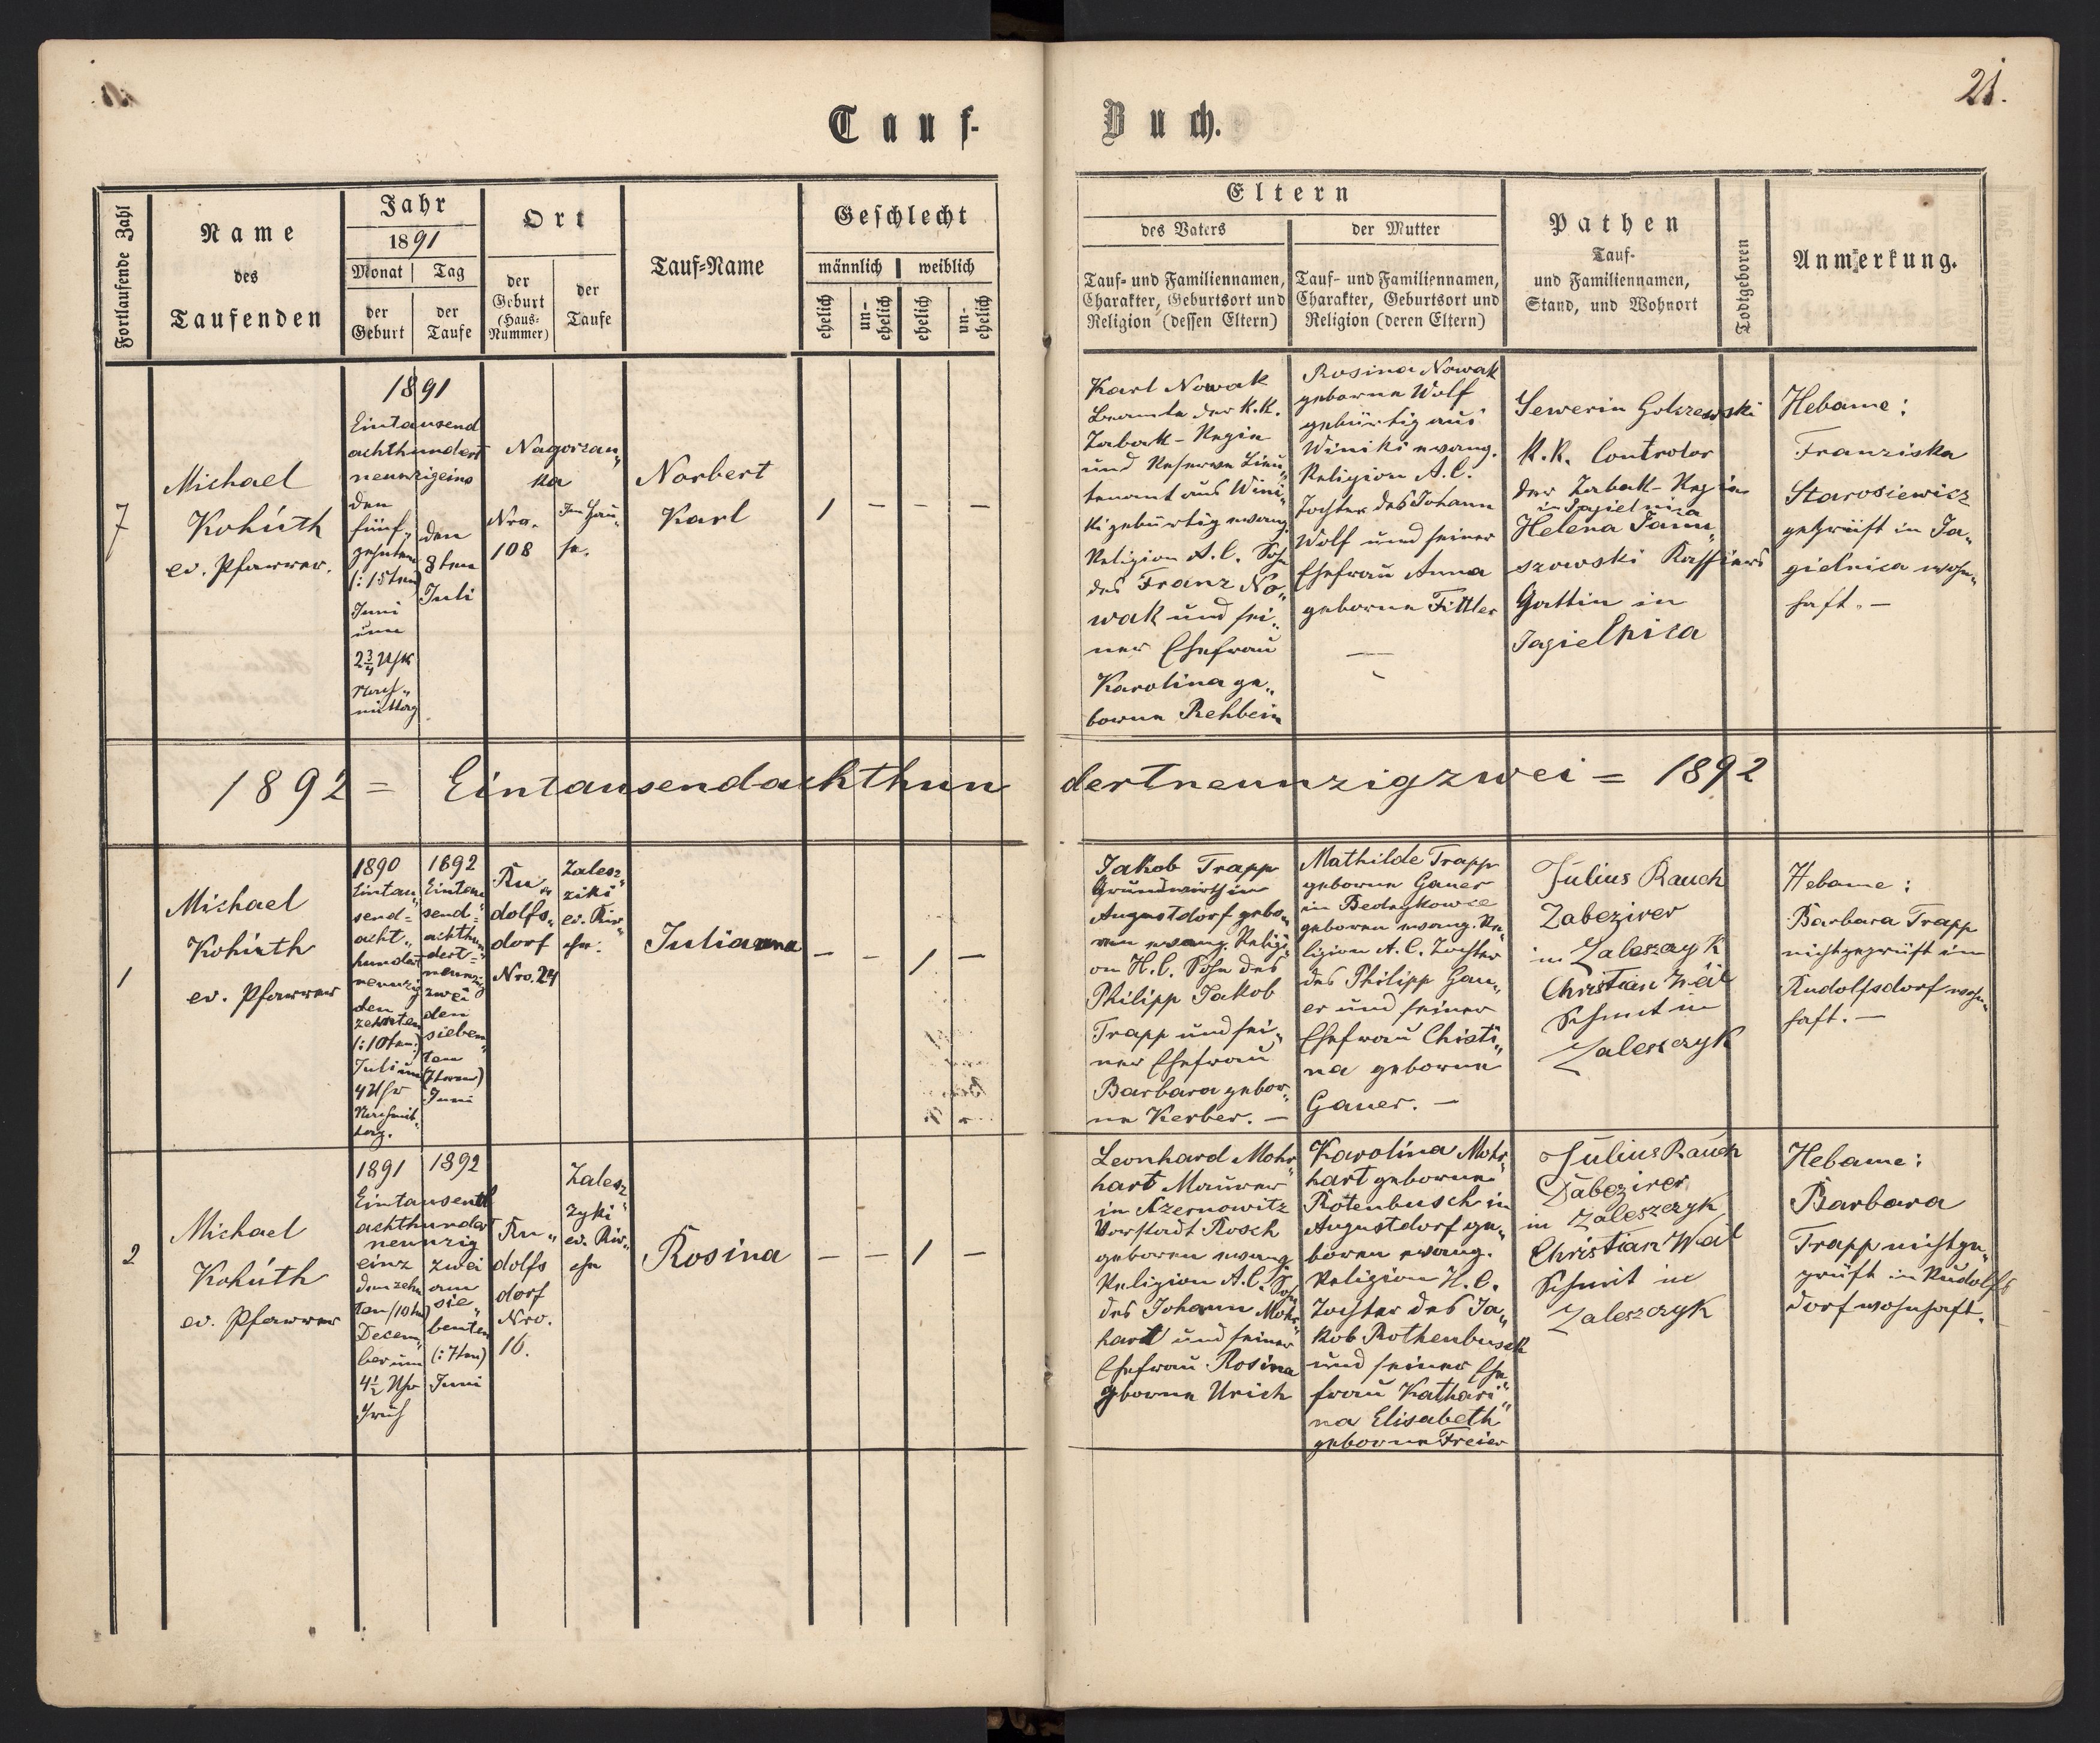 21.
Tauf-
Buch.
Fortlaufende Zahl
Name
des
Taufenden
Jahr
1891
Monat
Tag
der
Geburt
der
Taufe
Ort
der
Geburt
(Haus-
Nummer)
der
Taufe
Tauf-Name
Geschlecht
männlich
weiblich
ehelich
un-
ehelich
ehelich
un-
ehelich
Eltern
des Vaters
der Mutter
Tauf- und Familiennamen,
Charakter, Geburtsort und
Religion (dessen Eltern)
Tauf- und Familiennamen,
Charakter, Geburtsort und
Religion (deren Eltern)
Pathen
Tauf-
und Familiennamen,
Stand, und Wohnort
Todtgeboren
Anmerkung.
7
Michael
Kohúth
ev. Pfarrer.
1891
Eintausend
achthundert
neunzigeins
den
fünf„
zehnten
(:15ten)
Juni
um
2¾ Uhr
Nach„
mittag
den
8ten
Juli
Nagorzan„
ka
Nro.
108
Im Hau„
se.
Norbert
Karl
1 — — —
Karl Nowak
Beamte der K.K.
Tabak-Regie
und Reserve Lieu„
tenant aus Wini„
ki gebürtig evang.
Religion A.C. Sohn
des Franz No„
wak und sei„
ner Ehefrau
Karolina ge„
borne Rehbein
Rosina Nowak
geborne Wolf
gebürtig aus
Winiki evang.
Religion A.C.
Tochter des Johann
Wolf und seiner
Ehefrau Anna
geborne Fittler
—
Sewerin
K.K. Controlor
der Tabak-Regie
in Jagielnica
Helena
szowski Kassiers
Gattin in
Jagielnica
Hebame:
Franziska
Starosiewicz
geprüft in Ja„
gielnica wohn„
haft. —
1892 = Eintausendachthun
dertneunzigzwei = 1892
1
Michael
Kohúth
ev. Pfarrer
1890
Eintau„
send=
acht„
hundert
neunzig
den
zehnten
(:10ten:)
Juli um
4 Uhr
Nachmit„
tag.
1892
Eintau„
send=
achthun„
dert=
neunzig
zwei
den
sieben„
ten
Juni
Ru„
dolfs„
dorf
Nro. 24
Zalesz„
ziki
ev. Kir„
che.
Julianna
— — 1 —
Jakob Trapp
Grundwirth in
Augustdorf gebo„
ren evang. Religi„
on H.C. Sohn des
Philipp Jakob
Trapp und sei„
ner Ehefrau
Barbara gebor„
ne Kerber. —
Mathilde Trapp
geborne Gauer
in Bedrykowce
geboren evang. Re„
ligion A.C. Tochter
des Philipp Gau„
er und seiner
Ehefrau Christi„
na geborne
Gauer. —
Julius Rauch
Tabezirer
in Zaleszczyk
Christian Weil
Schmit in
Zaleszczyk
Hebame:
Barbara Trapp
nichtgeprüft in
Rudolfsdorf wohn„
haft. —
2
Michael
Kohúth
ev. Pfarrer
1891
1892
Eintausend
achthundert
neunzig
einz
den zehn
ten (10ten)
Decem„
ber um
4½ Uhr
früh
zwei
am
sie„
benten
(:7ten)
Juni
Ru„
dolfs
dorf
Nro.
16.
Zalesz„
zyki
ev. Kir„
che
Rosina
— — 1 —
Leonhard Mohr„
hart Maurer
in Czernowitz
Vorstadt Rosch
geboren evang.
Religion A.C. Sohn
des Johann Mohr„
hart und seiner
Ehefrau Rosina
geborne Urich
Karolina Mohr„
hart geborne
Rotenbusch in
Augustdorf ge„
boren evang.
Religion H.C.
Tochter des Ja„
kob Rothenbusch
und seiner Ehe
frau Kathari„
na Elisabeth
geborne Freier
Julius Rauch
Tabezirer
in Zaleszczyk
Christian Weil
Schmit in
Zaleszczyk
Hebame:
Barbara
Trapp nichtge„
prüft in Rudolfs
dorf wohnhaft.